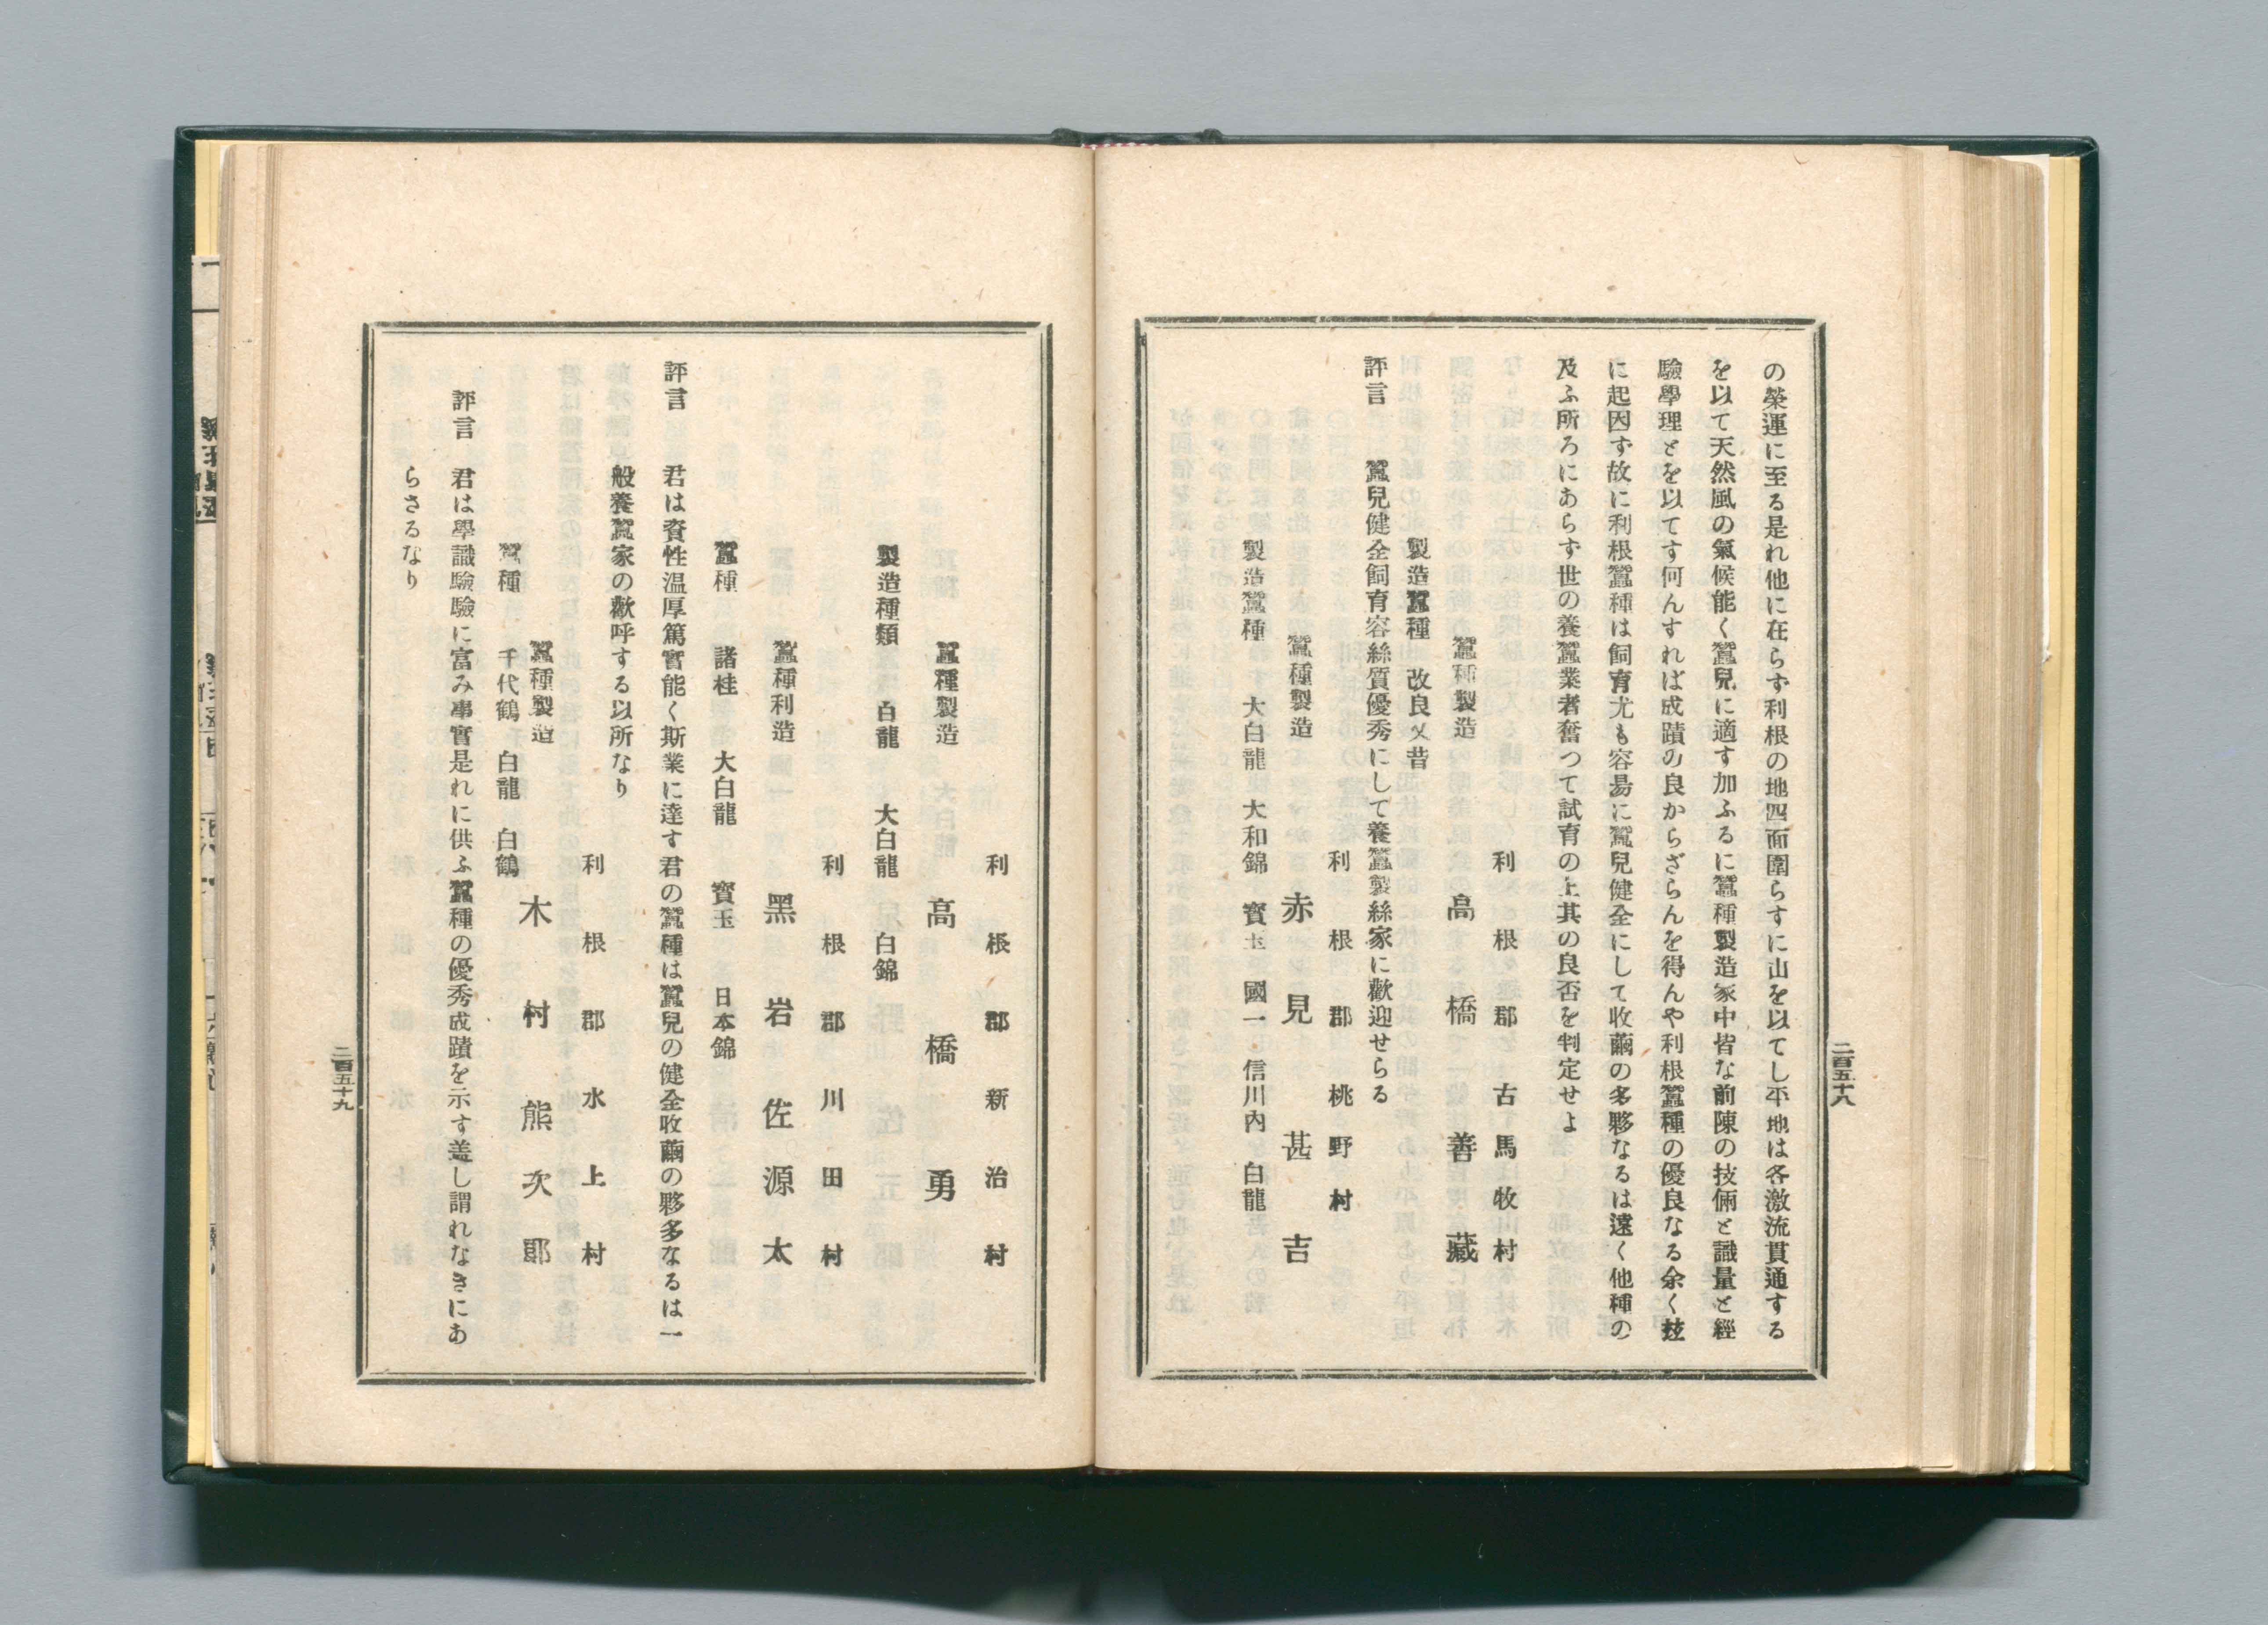 の榮運に至る是れ他に在らず利根の地四面圍らすに山を以てし平地は各激流貫通する
を以て天然風の氣候能く蠶兒に適す加ふるに蠶種製造家中皆な前陳の技倆と識量と經
驗學理とを以てす何んすれば成蹟の良からざらんを得んや利根蠶種の優良なる余く玆
に起因す故に利根蠶種は飼育尤も容易に蠶兒健全にして收繭の多夥なるは遠く他種の
及ふ所ろにあらす世の養蠶業者奮つて試育の上其の良否を判定せよ
利根郡古馬牧村
蠶種製造 高橋善藏
製造蠶種 改良又昔
評言 蠶兒健全飼育容絲質優秀にして養蠶製絲家に歡迎せらる
利根郡桃野村
蠶種製造 赤見甚吉
製造蠶種 大白龍 大和錦 寳玉 國一 信川內 白龍
二百五十八
利根郡新治村
蠶種製造 高橋勇
製造種類 白龍 大白龍 白錦
利根郡川田村
蠶種利造 黑岩佐源太
蠶種 諸桂 大白龍 寳玉 日本錦
評言 君は資性温厚篤實能く斯業に達す君の蠶種は蠶兒の健全收繭の夥多なるは一
般養蠶家の歡呼する以所なり
利根郡水上村
蠶種製造 木村熊次郎
蠶種 千代鶴 白龍 白鶴
評言 君は學識驗驗に富み事實是れに供ふ蠶種の優秀成蹟を示す盖し謂れなきにあ
らさるなり
二百五十九